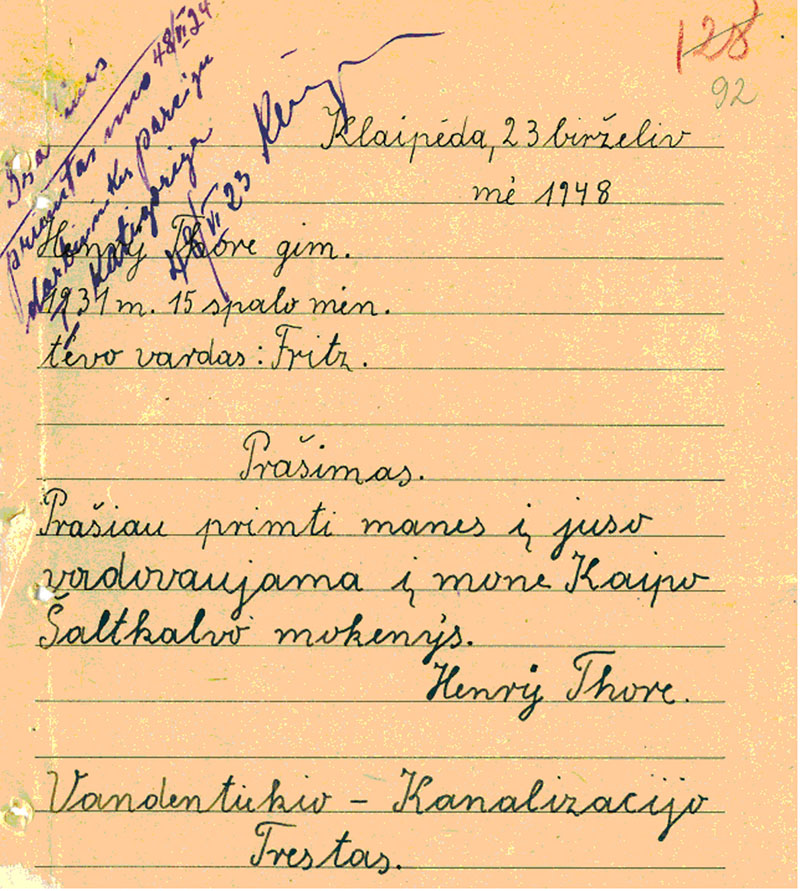 128
92
48/VI 24
priimtas nuo
darbininkės pareigu
Katigorija
48/VI 23
Klaipėda, 23 birželiv
mė 1948
Henry Thore gim.
1931 m. 15 spalo mėn.
tėvo vardas: Fritz.
Prašimas.
Prašiau primti manes į juso
vadovaujama į mone Kaipo
Šaltkalvo mokenys.
Henry Thore.
Vandentiekio – Kanalizacijo
Trestas.